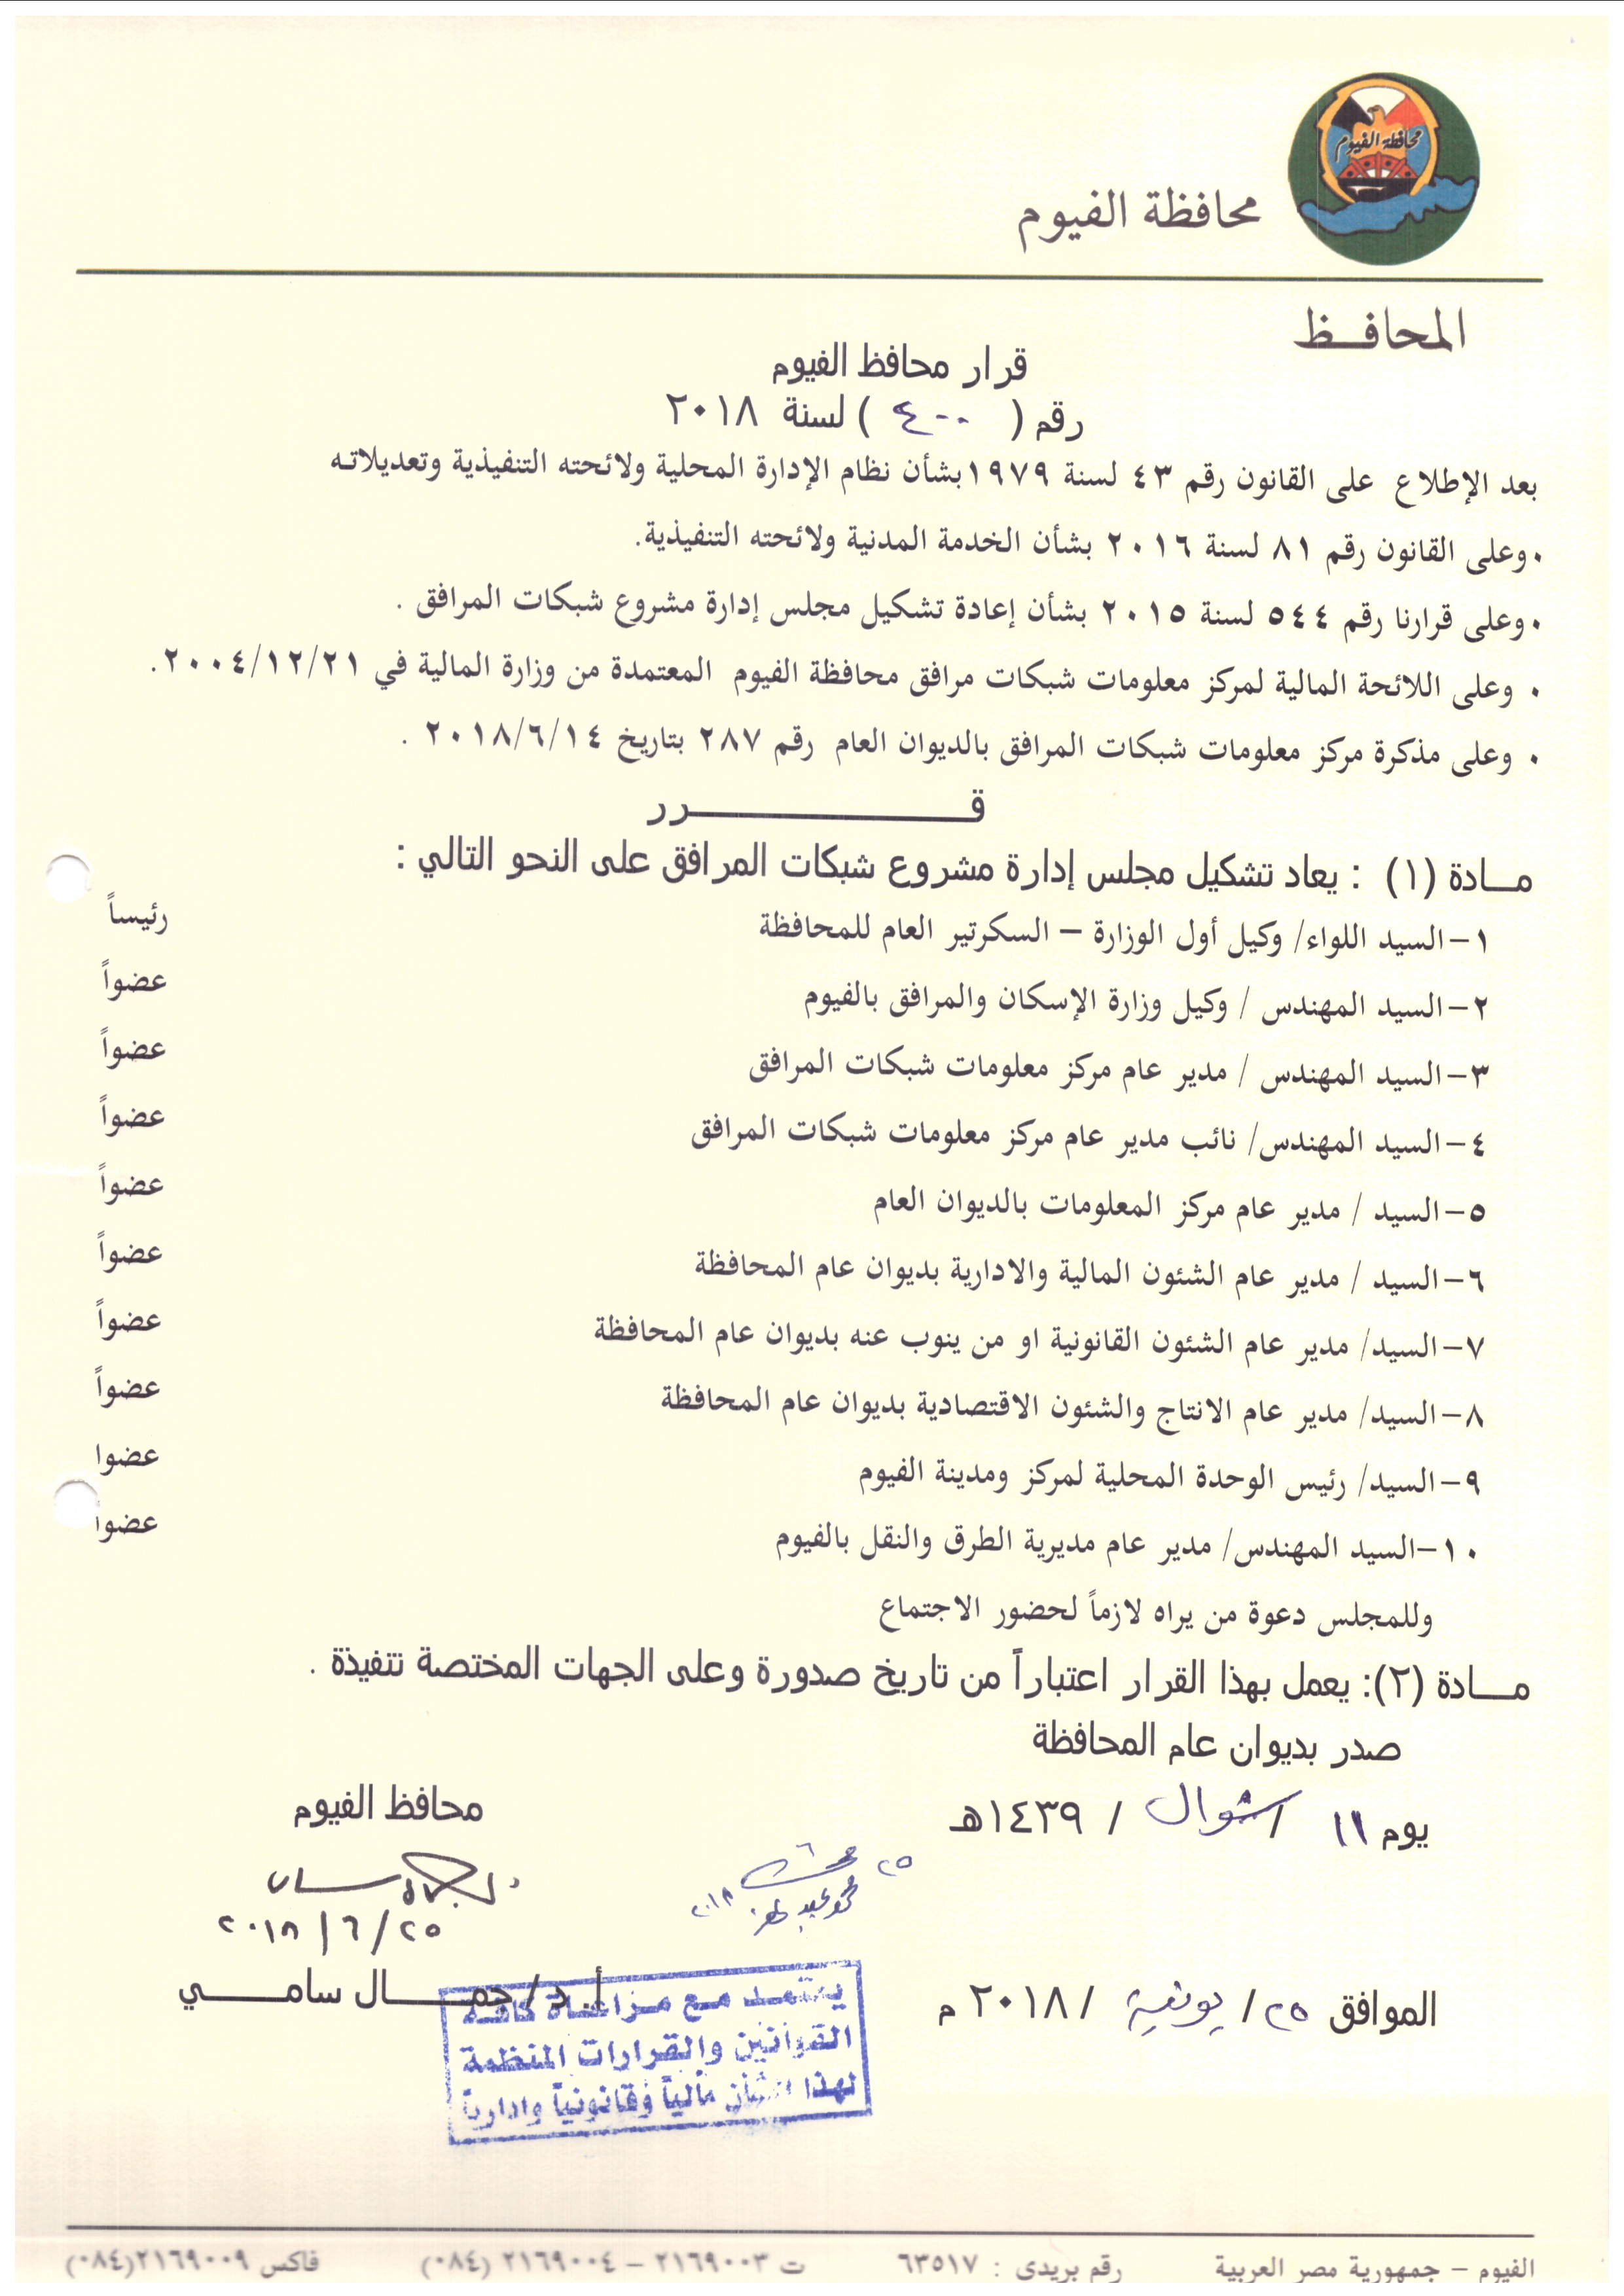 محافظة الفيوم
محافظة الفيوم
المحافـــظ
قرار محافظ الفيوم
رقم ( ٤٠٠ ) لسنة ٢٠١٨
بعد الإطلاع على القانون رقم ٤٣ لسنة ١٩٧٩ بشأن نظام الإدارة المحلية ولائحته التنفيذية وتعديلاته
٠ وعلى القانون رقم ٨١ لسنة ٢٠١٦ بشأن الخدمة المدنية ولائحته التنفيذية.
٠ وعلى قرارنا رقم ٥٤٤ لسنة ٢٠١٥ بشأن إعادة تشكيل مجلس إدارة مشروع شبكات المرافق .
٠ وعلى اللائحة المالية لمركز معلومات شبكات مرافق محافظة الفيوم المعتمدة من وزارة المالية في ٢٠٠٤/١٢/٢١.
٠ وعلى مذكرة مركز معلومات شبكات المرافق بالديوان العام رقم ٢٨٧ بتاريخ ٢٠١٨/٦/١٤ .
قـــــــــــرر
مـــادة (١) : يعاد تشكيل مجلس إدارة مشروع شبكات المرافق على النحو التالي :
١– السيد اللواء/ وكيل أول الوزارة – السكرتير العام للمحافظة رئيساً
٢– السيد المهندس / وكيل وزارة الإسكان والمرافق بالفيوم عضواً
٣– السيد المهندس / مدير عام مركز معلومات شبكات المرافق عضواً
٤– السيد المهندس/ نائب مدير عام مركز معلومات شبكات المرافق عضواً
٥– السيد / مدير عام مركز المعلومات بالديوان العام عضواً
٦– السيد / مدير عام الشئون المالية والادارية بديوان عام المحافظة عضواً
٧– السيد/ مدير عام الشئون القانونية او من ينوب عنه بديوان عام المحافظة عضواً
٨– السيد/ مدير عام الانتاج والشئون الاقتصادية بديوان عام المحافظة عضواً
٩– السيد/ رئيس الوحدة المحلية لمركز ومدينة الفيوم عضوا
١٠– السيد المهندس/ مدير عام مديرية الطرق والنقل بالفيوم عضوا
وللمجلس دعوة من يراه لازماً لحضور الاجتماع
مـــادة (٢): يعمل بهذا القرار اعتباراً من تاريخ صدورة وعلى الجهات المختصة تنفيذة .
صدر بديوان عام المحافظة
محافظ الفيوم
يوم ١١ / شوال / ١٤٣٩هـ
٢٥
٢٠١٨
٢٠١٨/٦/٢٥
أ.د/جمـــال سامـــي
الموافق ٢٥/ يونية / ٢٠١٨ م
يعتمد مع مراعاة كافة
القوانين والقرارات المنظمة
لهذا الشأن مالياً وقانونياً وادارياً
الفيوم – جمهورية مصر العربية رقم بريدى : ٦٣٥١٧ ت ٢١٦٩٠٠٣ – ٢١٦٩٠٠٤ (٠٨٤) فاكس ٢١٦٩٠٠٩(٠٨٤)